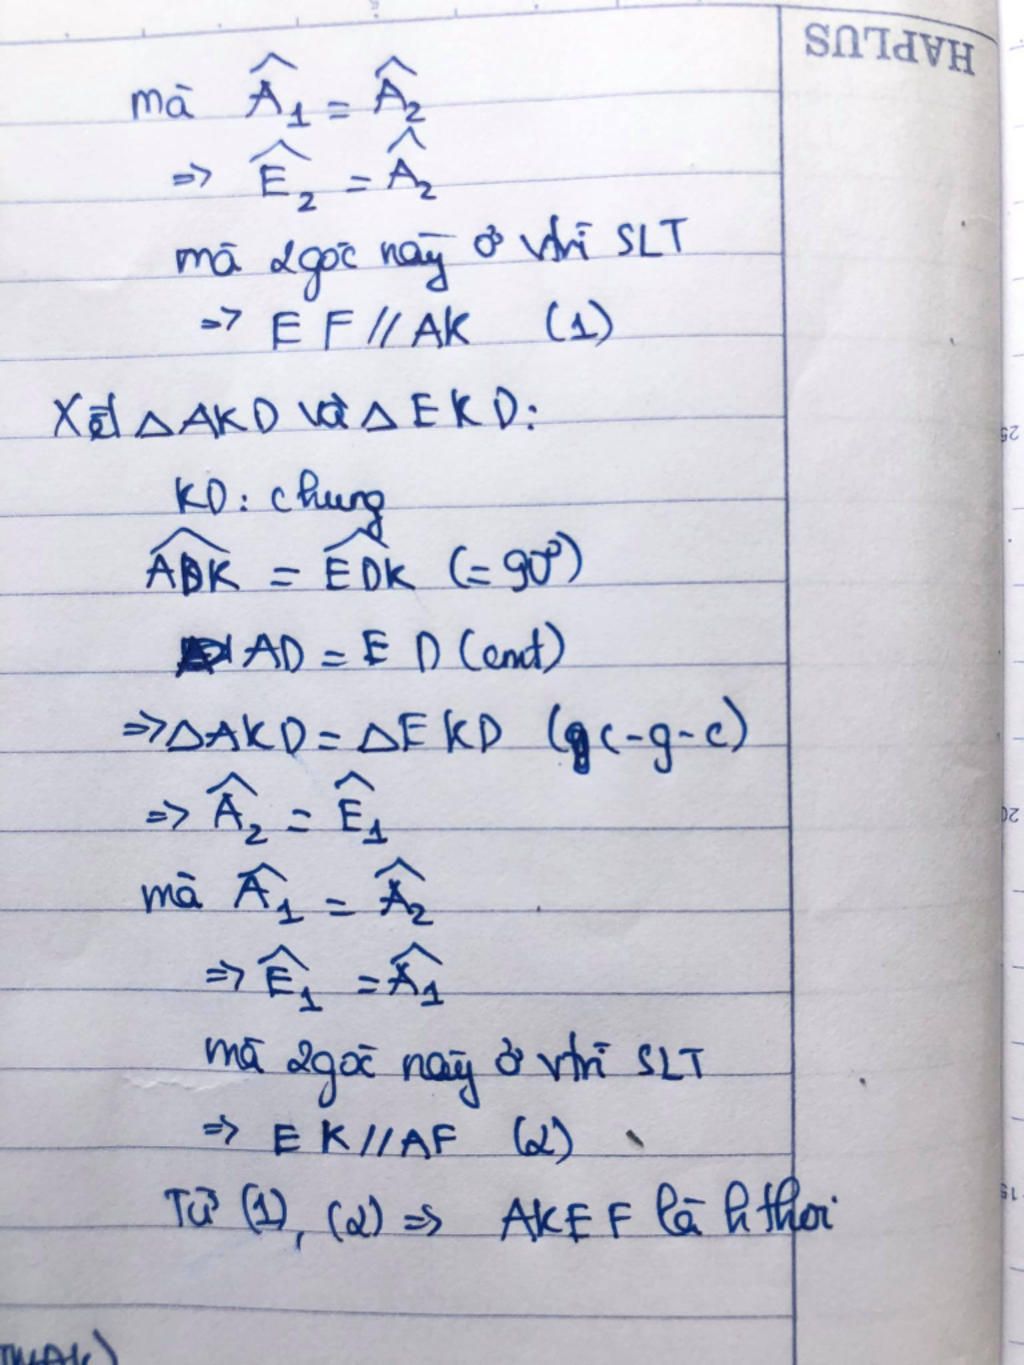 HAPLUS
mà Â₁ = Â₂
=> Ê₂ = Â₂
mà 2 góc này ở vtrí SLT
=> EF // AK (1)
Xét △AKD và △EKD:
KD: chung
ADK = EDK (= 90°)
AD = ED (cmt)
=> △AKD = △EKD (c-g-c)
=> Â₂ = Ê₁
mà Â₁ = Â₂
=> Ê₁ = Â₁
mà 2 góc này ở vtrí SLT
=> EK // AF (2)
Từ (1), (2) => AKEF là h thoi